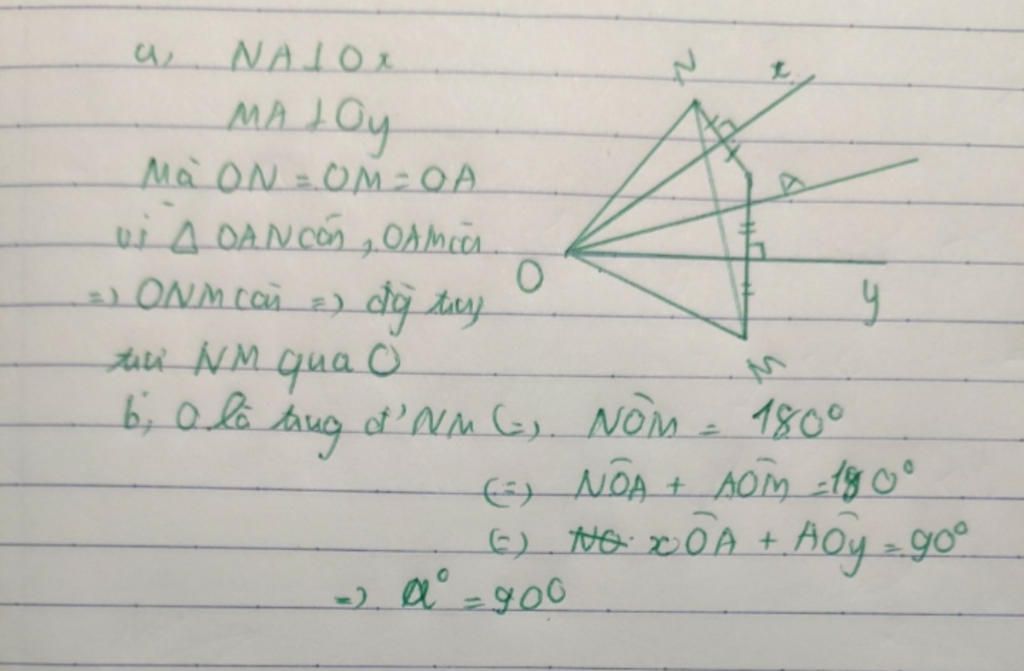 a, NA⊥Ox
MA⊥Oy
Mà ON = OM = OA
vì Δ OAN cân, OAM cân
=> ONM cân => đg trug
trực NM qua O
b, O là trug đ' NM (=) NOM = 180°
(=) NOA + AOM = 180°
(=) xOA + AOy = 90°
=> a° = 900
N
x
A
O
y
M